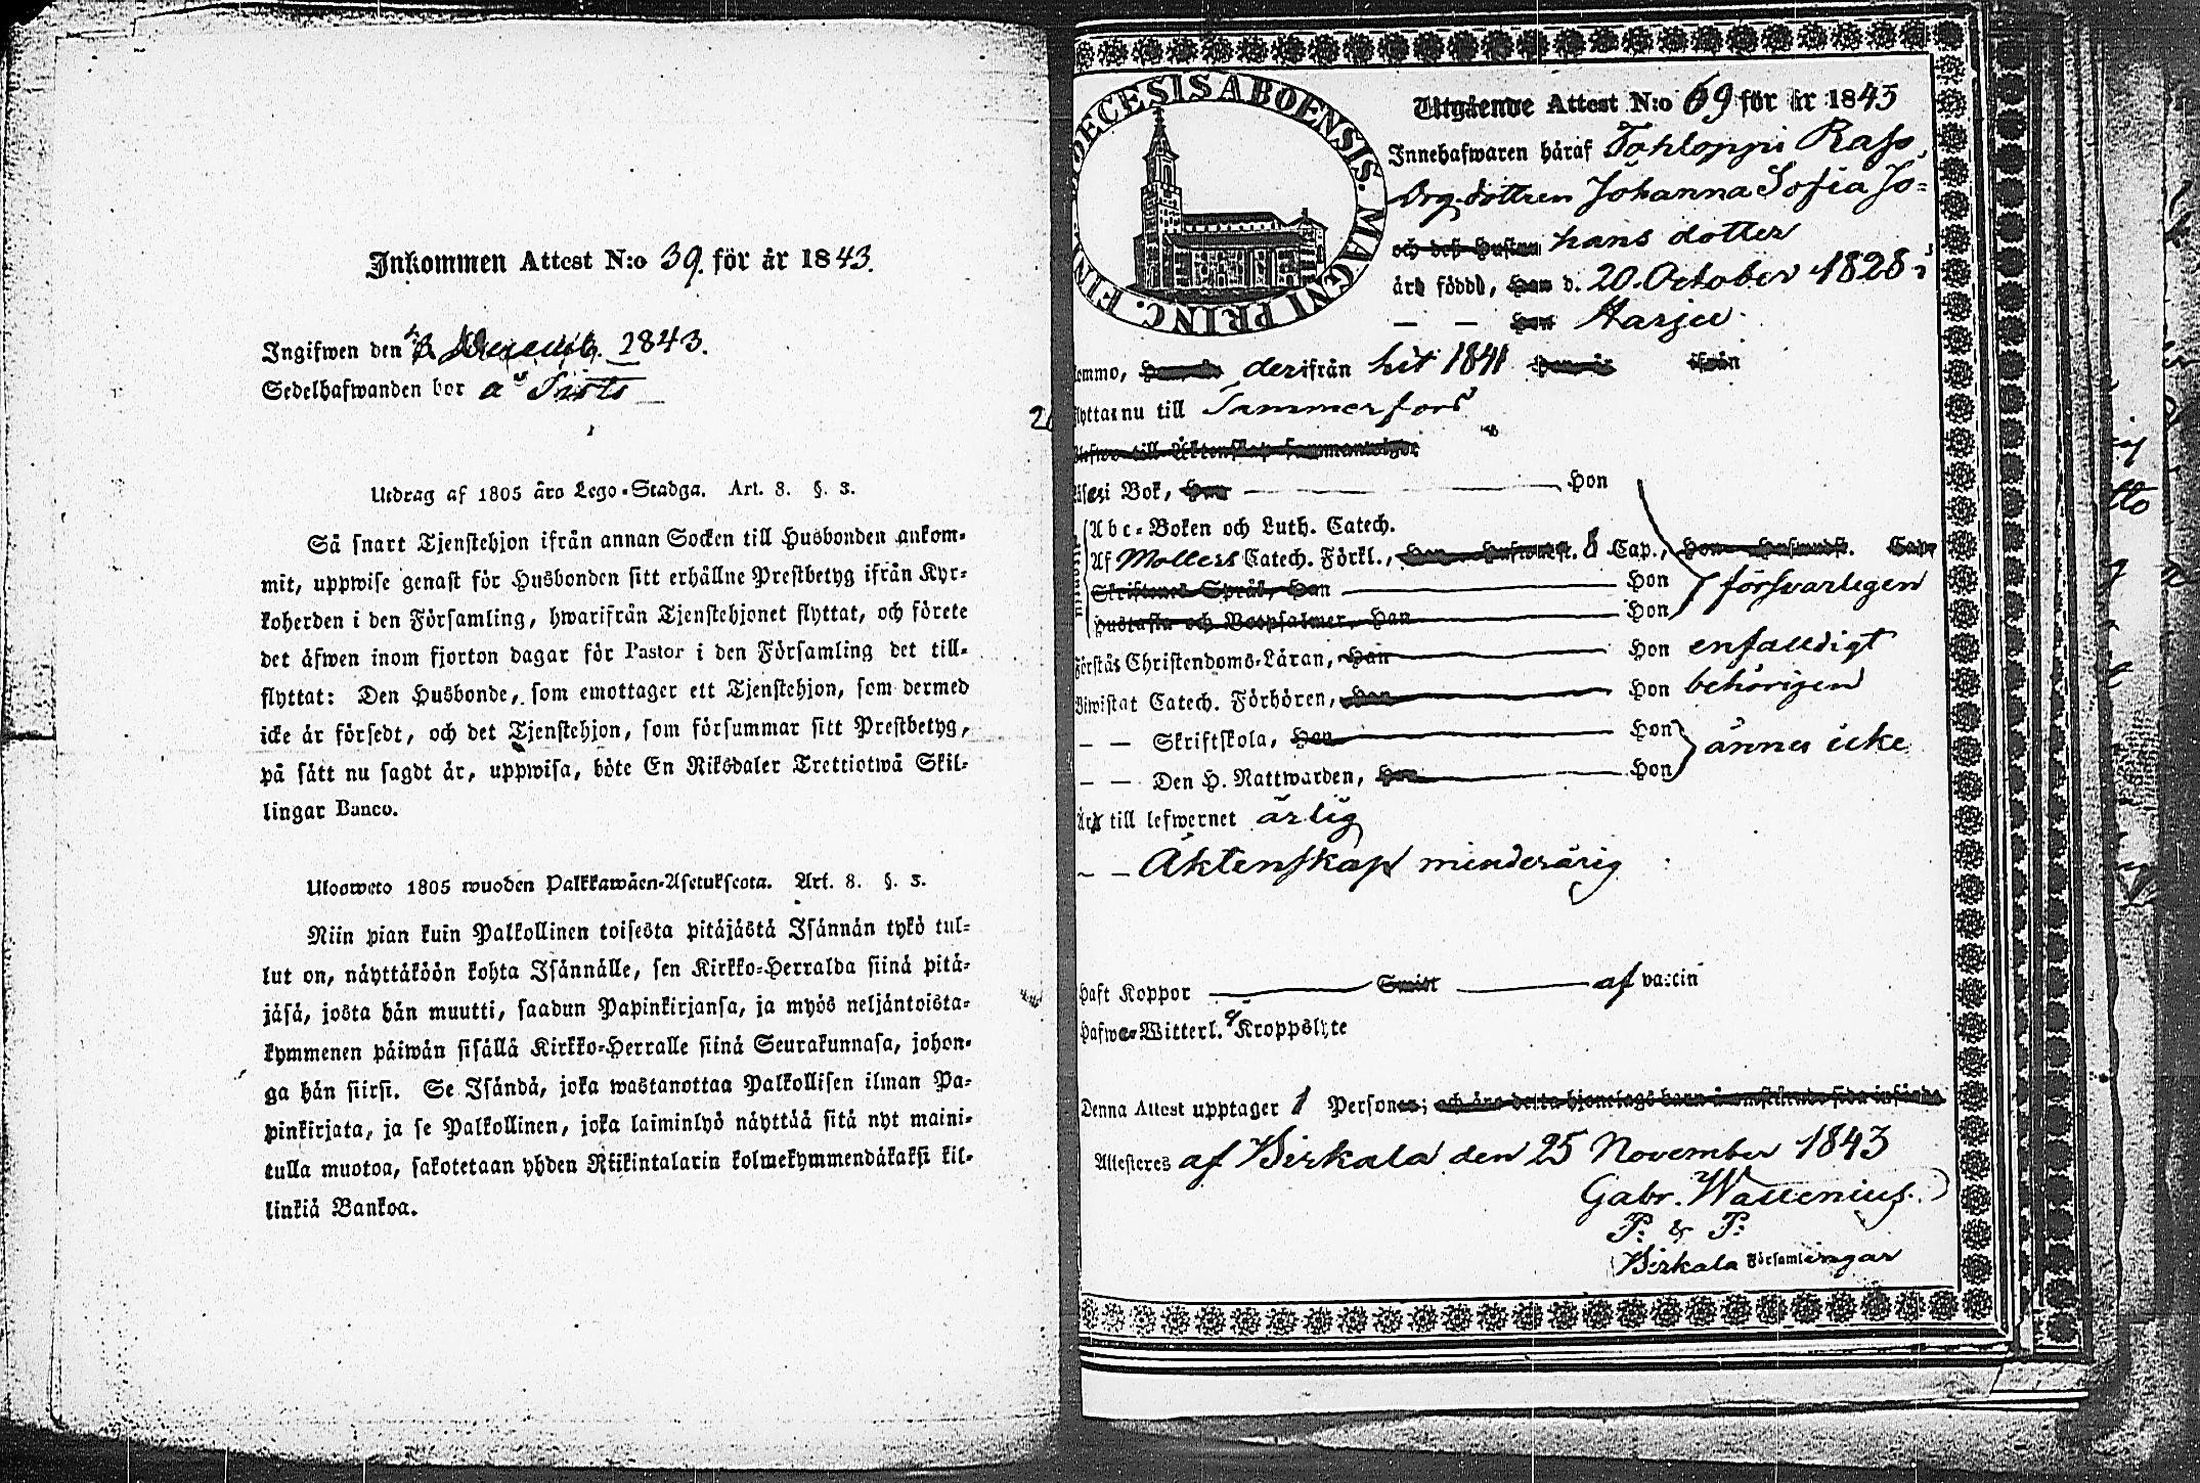 Inkommen Attest N:o 39. för år 1843.
Ingifwen den 1843.
Sedelhafwanden bor a
Utdrag af 1805 års Lego-Stadga. Art. 8. §. 3.
Så snart Tjenstehjon ifrån annan Socken till Husbonden ankom-
mit, uppwise genast för Husbonden sitt erhållne Prestbetyg ifrån Kyr-
koherden i den Församling, hwarifrån Tjenstehjonet flyttat, och förete
det åfwen inom fjorton dagar för Pastor i den Församling det till-
flyttat: Den Husbonde, som emottager ett Tjenstehjon, som dermed
icke år försedt, och det Tjenstehjon, som försummar sitt Prestbetyg,
på sått nu sagdt år, uppwisa, böte En Riksdaler Trettiotwå Skil-
lingar Banco.
Ulosweto 1805 wuoden Palkkawåen-Asetuksesta. Art. 8. §. 3.
Niin pian kuin Palkollinen toisesta pitåjåstå Isånnån tykö tul-
lut on, nåyttåköön kohta Isånnålle, sen Kirkko-Herralda siinå pitå-
jåså, josta hån muutti, saadun Papinkirjansa, ja myös neljåntoista-
kymmenen påiwån sisållå Kirkko-Herralle siinå Seurakunnasa, johon-
ga hån siirsi. Se Isåndå, joka wastanottaa Palkollisen ilman Pa-
pinkirjata, ja se Palkollinen, joka laiminlyö nåyttåå sitå nyt maini-
tulla muotoa, sakotetaan yhden Riikintalarin kolmekymmendåkaksi kil-
linkiå Bankoa.
DECESIS ABOENSIS. MAGNI PRINC. FIN
Utgående Attest N:o 69 för år 1843
Innehafwaren håraf Tohloppi Rass.
drg. dottren Johanna Sofia Jo=
och dess Hustru hans dotter
åro födde, Han d. 20. October 1828 i
— — Hon Harju
komme, derifrån hit 1841 ifrån
flyttar nu till Tammerfors
till Åktenskap
i Bok, Han — Hon
Abc-Boken och Luth. Catech.
Af Mollers Catech. Förkl., 8 Cap.,
Skriftenes Språk, Han — Hon försvarligen
Hustafla och Botpsalmer, Han — Hon
Förstås Christendoms-Låran, Han — Hon enfaldigt
Biwistat Catech. Förhören, Han — Hon behörigen
— — Skriftskola, Han — Hon ännu icke
— — Den H. Nattwarden, Han — Hon
År till lefwernet ärlig
— — Äktenskap minderårig
Haft Koppor — Smitt — af vaccin
Hafwe Witterl. Kroppslyte
Denna Attest upptager 1 Personer; och
Attesteres af Birkala den 25 November 1843
Gabr. Wallenius.
P. & P.
Birkala Församlingar